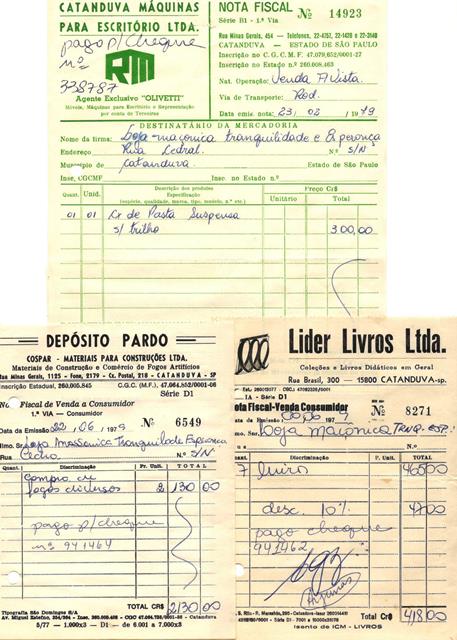 CATANDUVA MÁQUINAS
PARA ESCRITÓRIO LTDA.
pago p/ cheque
nº
338787
RM
Agente Exclusivo "OLIVETTI"
Móveis, Máquinas para Escritório e Representação
por conta de Terceiros
NOTA FISCAL Nº 14923
Série B1 - 1.ª Via
Rua Minas Gerais, 454 — Telefones, 22-4757, 22-1420 e 22-3140
CATANDUVA — ESTADO DE SÃO PAULO
Inscrição no C. G. C. M. F. 47.079.652/0001-27
Inscrição no Estado n.º 260.008.463
Nat. Operação: Venda A Vista.
Via de Transporte: Rod.
Data emis. nota: 23, 02 / 1979
DESTINATÁRIO DA MERCADORIA
Nome da firma: Loja maçonica tranquilidade e Esperança
Endereço Rua N.º S/N
Município de Catanduva. Estado de São Paulo
Insc. CGCMF Insc. no Estado n.º
Quant. Unid. Descrição dos produtos Preço Cr$
Especificação
(espécie, qualidade, marca, tipo, modelo, n.º etc.) Unitário Total
01 01 Cx de Pasta Suspensa
s/ trilho 300,00
DEPÓSITO PARDO
COSPAR - MATERIAIS PARA CONSTRUÇÕES LTDA.
Materiais de Construção e Comércio de Fogos Artifícios
Rua Minas Gerais, 1125 - Fone, 2179 - Cx. Postal, 218 - CATANDUVA - SP
Inscrição Estadual, 260.005.845 C.G.C. (M.F.), 47.064.852/0001-06
Série D1
Nota Fiscal de Venda a Consumidor
1.ª VIA — Consumidor Nº 6549
Data da Emissão 22, 06 / 1979
Ilmo. Sr. Loja Tranquilidade Esperança
Rua N.º S/N
Quant. Discriminação Pr. Unit. TOTAL
compra de
fogos diversos 2 130 00
pago p/ cheque
nº 941464
TOTAL CR$ 2130,00
Tipografia São Domingos S/A
5/77 — 1.000x3 — D1 — de 6.001 a 7.000x3
Lider Livros Ltda.
Coleções e Livros Didáticos em Geral
Rua Brasil, 300 — 15800 CATANDUVA-sp.
1.ª VIA - Série D1
Nota Fiscal-Venda Consumidor
Data da Emissão Nº 8271
Ilmo. Sr. Loja Maçonica TRNQ. ESP.
Quant. Discriminação P. Unit. TOTAL
7 livro 465,00
desc. 10% 47,00
pago cheque
941462
Total Cr$ 418,00
Isento de ICM - LIVROS